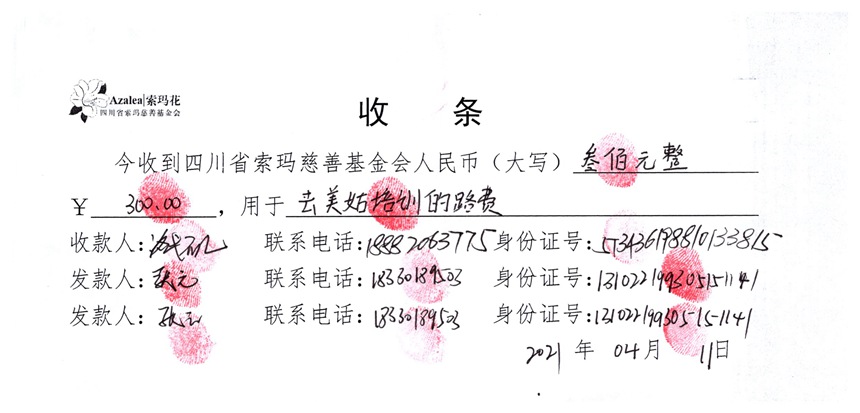 Azalea|索玛花
四川省索玛慈善基金会
收 条
今收到四川省索玛慈善基金会人民币（大写）叁佰元整
￥ 300.00 ，用于 去美姑培训的路费
收款人： 联系电话：18882063775 身份证号：
发款人： 联系电话：18330189503 身份证号：131022199305151141
发款人： 联系电话：18330189503 身份证号：131022199305151141
2021 年 04月 11日